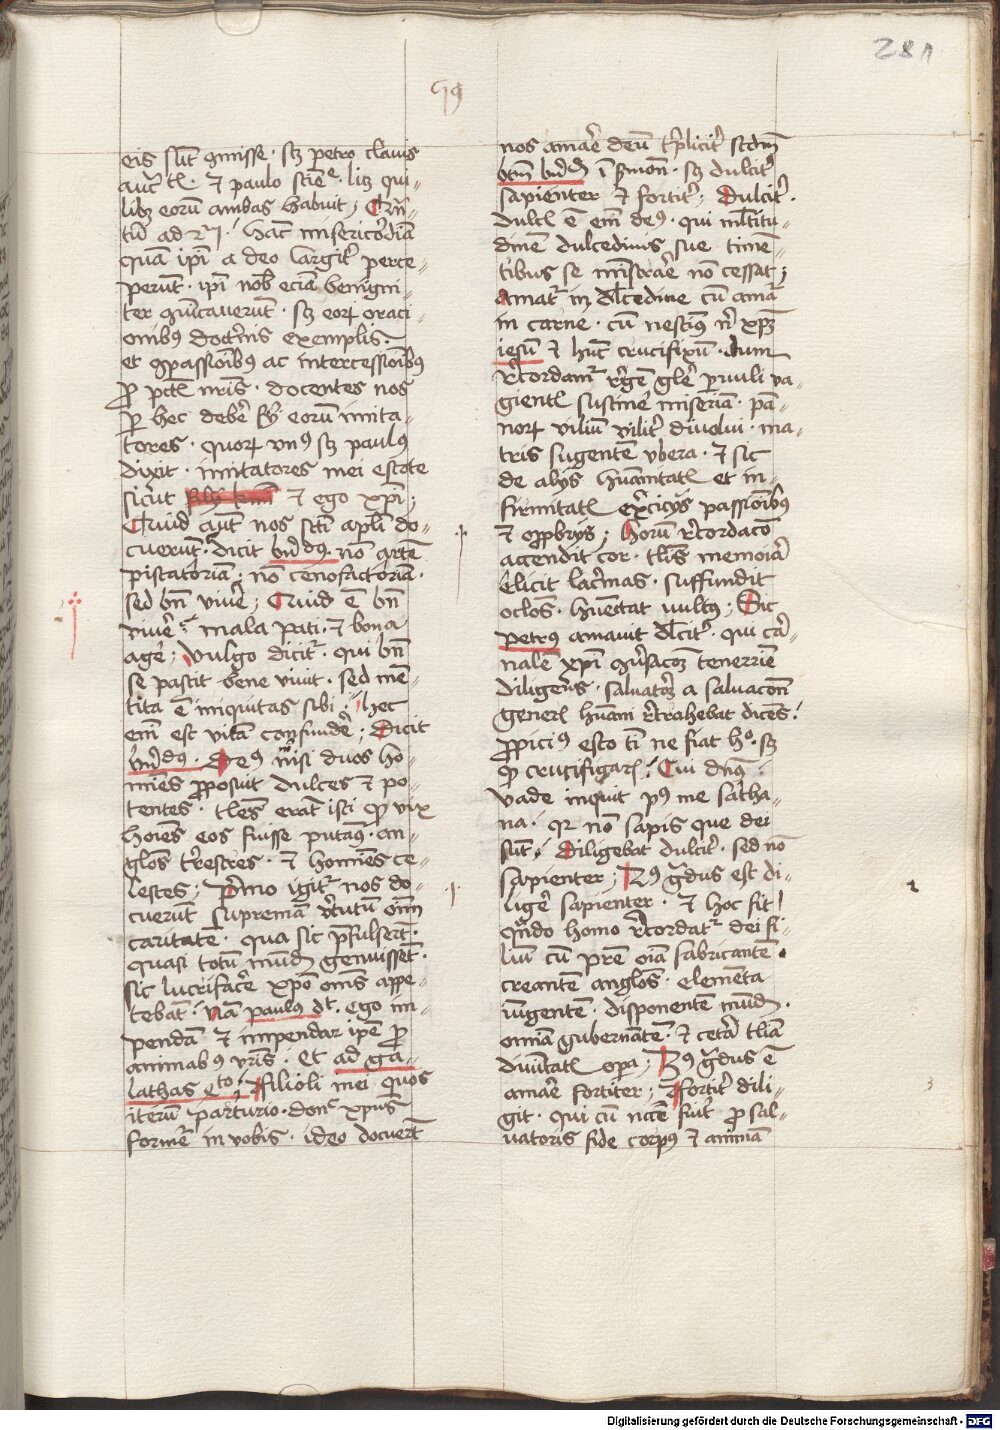 281
99
eis sūt ꝯmisse · sꝫ petro clavis
auctͭ · ⁊ paulo sciē · lic qui-
libꝫ eorū ambas habuit;
tū ad · hāc misericordiā
quā ipī a deo largitͬ perce-
perūt · ipī nob eciā benigni-
ter ꝯmūcaverūt · sꝫ eoꝝ oraci-
onibꝰ doctͥnis exemplis ·
et ꝯpassiōibꝰ ac intercessiōibꝰ
ꝓ pctis nrīs · docentes nos
ꝑ hec debē eorū imita-
tores · quoꝝ vnꝰ sꝫ paulus
dixit · imitatores mei estote
sicut ⁊ ego xpī;
Quid aūt nos sctī apli do-
cuerūt · dicit bnͬdꝰ · nō artē
piscatoriā; nō cenofactoriā ·
sed bn̄ vivͤe; Quid ē bn̄
vivͤe mala pati · ⁊ bona
agͤe; Vulgo dicitͬ · qui bn̄
se pascit bene vivit · sed mē-
tita ē iniquitas sibi; hec
em̄ est vitā confundͤe; Dicit
bnͬdꝰ · Deꝰ nͦ nisi duos ho-
mīes ꝓposuit dulces ⁊ po-
tentes · tles erāt isti ꝙ vix
hoīes eos fuisse putamꝰ · an-
glos tͬrestres · ⁊ homīes ce-
lestes; Pͥmo igitͬ nos do-
cuerūt supremā vͬtutū om̄
caritatē · qua sic p̄fulserūt ·
quasi totū mūdū genuissēt ·
sic lucrifacͤe xpō om̄s appe-
tebāt · Nā paulus dt · ego im-
pendā ⁊ impendar ipē ꝓ
animabꝰ vrīs · et ad ga-
lathas 4ͭͦ; filioli mei quos
iterū parturio · donͨ xpus
formetͬ in vobis · ideo docuerūt
nos amaͬe deū tͥplicitͬ scdm̄
btm̄ bnͬdū ī sͬmon · sꝫ dulcitͬ
sapienter ⁊ fortitͬ; Dulcitͬ ·
dulcis ē em̄ deꝰ · qui mltitu-
dinē dulcedinis sue timē-
tibus se mīstraͬe nō cessat;
Amatͬ in dlcedine cū amaͬ
in carne · cū nr̄ xpm̄
iesū ⁊ hūc crucifixū · dum
rͤcordamͬ rͤgē gliͤ pͣvuli va-
gientis sustinͤe miseriā · pā-
noꝝ viliū vilitͬ divolui · ma-
tris sugentē vbera · ⁊ sic
de alijs hūanitatis et in-
firmitatis exͬcicijs passiōibꝰ
⁊ opꝓbrijs; Horū rͤcordacō
accendit cor · tlis memoiā
elicit lacͬmas · suffundit
oclos · hūectat vultus; Sic
petrus amavit dlcitͬ · qui caͬ-
nalē xpī ꝯvͬsacōꝫ tenerriē
diligens · salvatorē a salvacōn
genͤis hūani rͤtrahebat dicēs ·
ꝓpiciꝰ esto tī ne fiat hͦ · sꝫ
ꝙ crucifigaris; Cui dnꝰ ·
vade inquit pꝰ me satha-
na · qꝛ nō sapis que dei
sūt; Diligebat dulcitͬ · sed nō
sapienter; 2ꝰ gͣdus est di-
ligͤe sapienter · ⁊ hoc fit
qn̄do homo rͤcordatͬ dei fi-
liū cū prē oīa fabricantē ·
creantē anglos · elemēta
iūgentē · disponentē mūdū ·
omnia gubernātē · ⁊ cetͬa tlia
divītatis opͣa; 3ꝰ gͣdus ē
amaͬe fortiter; Fortitͬ dili-
git · qui cū ncē fūitͬ ꝓ sal-
vatoris fide corpus ⁊ animā
3
Digitalisierung gefördert durch die Deutsche Forschungsgemeinschaft - DFG